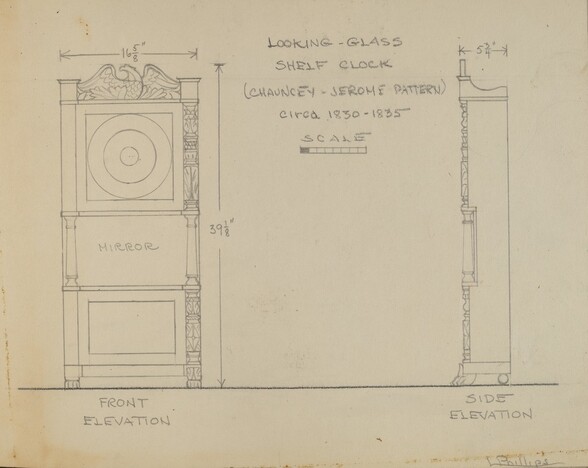 LOOKING-GLASS
SHELF CLOCK
(CHAUNCEY-JEROME PATTERN)
circa 1830-1835
SCALE
16 5/8"
5 3/4"
39 1/8"
MIRROR
FRONT
ELEVATION
SIDE
ELEVATION
L Phillips